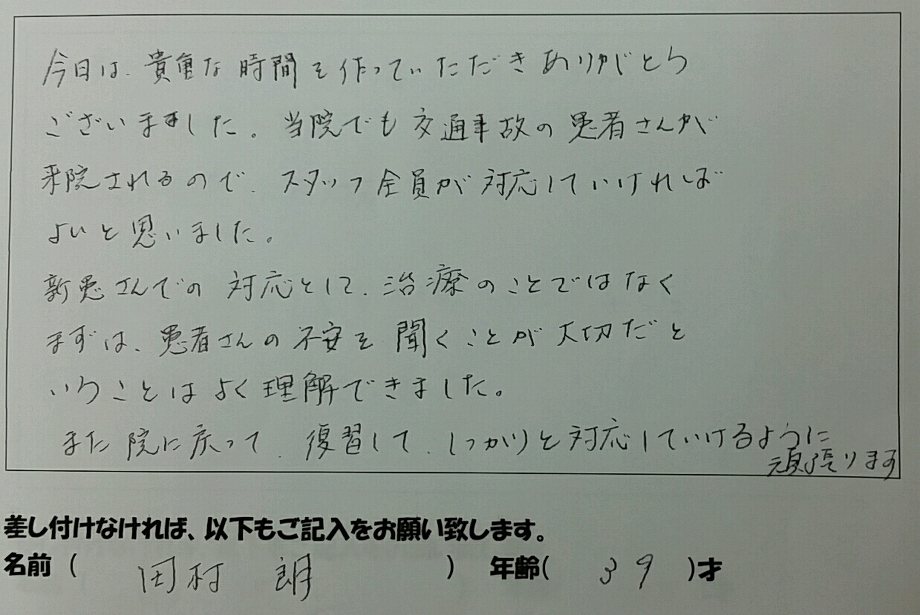 今日は、貴重な時間を作っていただきありがとう
ございました。当院でも交通事故の患者さんが
来院されるので、スタッフ全員が対応していければ
よいと思いました。
新患さんでの対応として、治療のことではなく
まずは、患者さんの不安を聞くことが大切だと
いうことはよく理解できました。
また院に戻って、復習して、しっかりと対応していけるように
頑張ります
差し付けなければ、以下もご記入をお願い致します。
名前 ( 田村 朗 ) 年齢( 39 )才